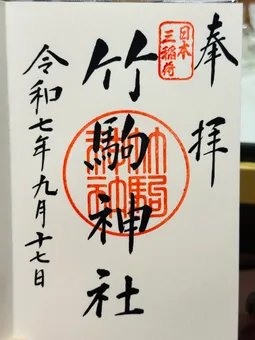 奉拝
日本
三稲荷
竹駒神社
竹駒
神社
令和七年九月十七日